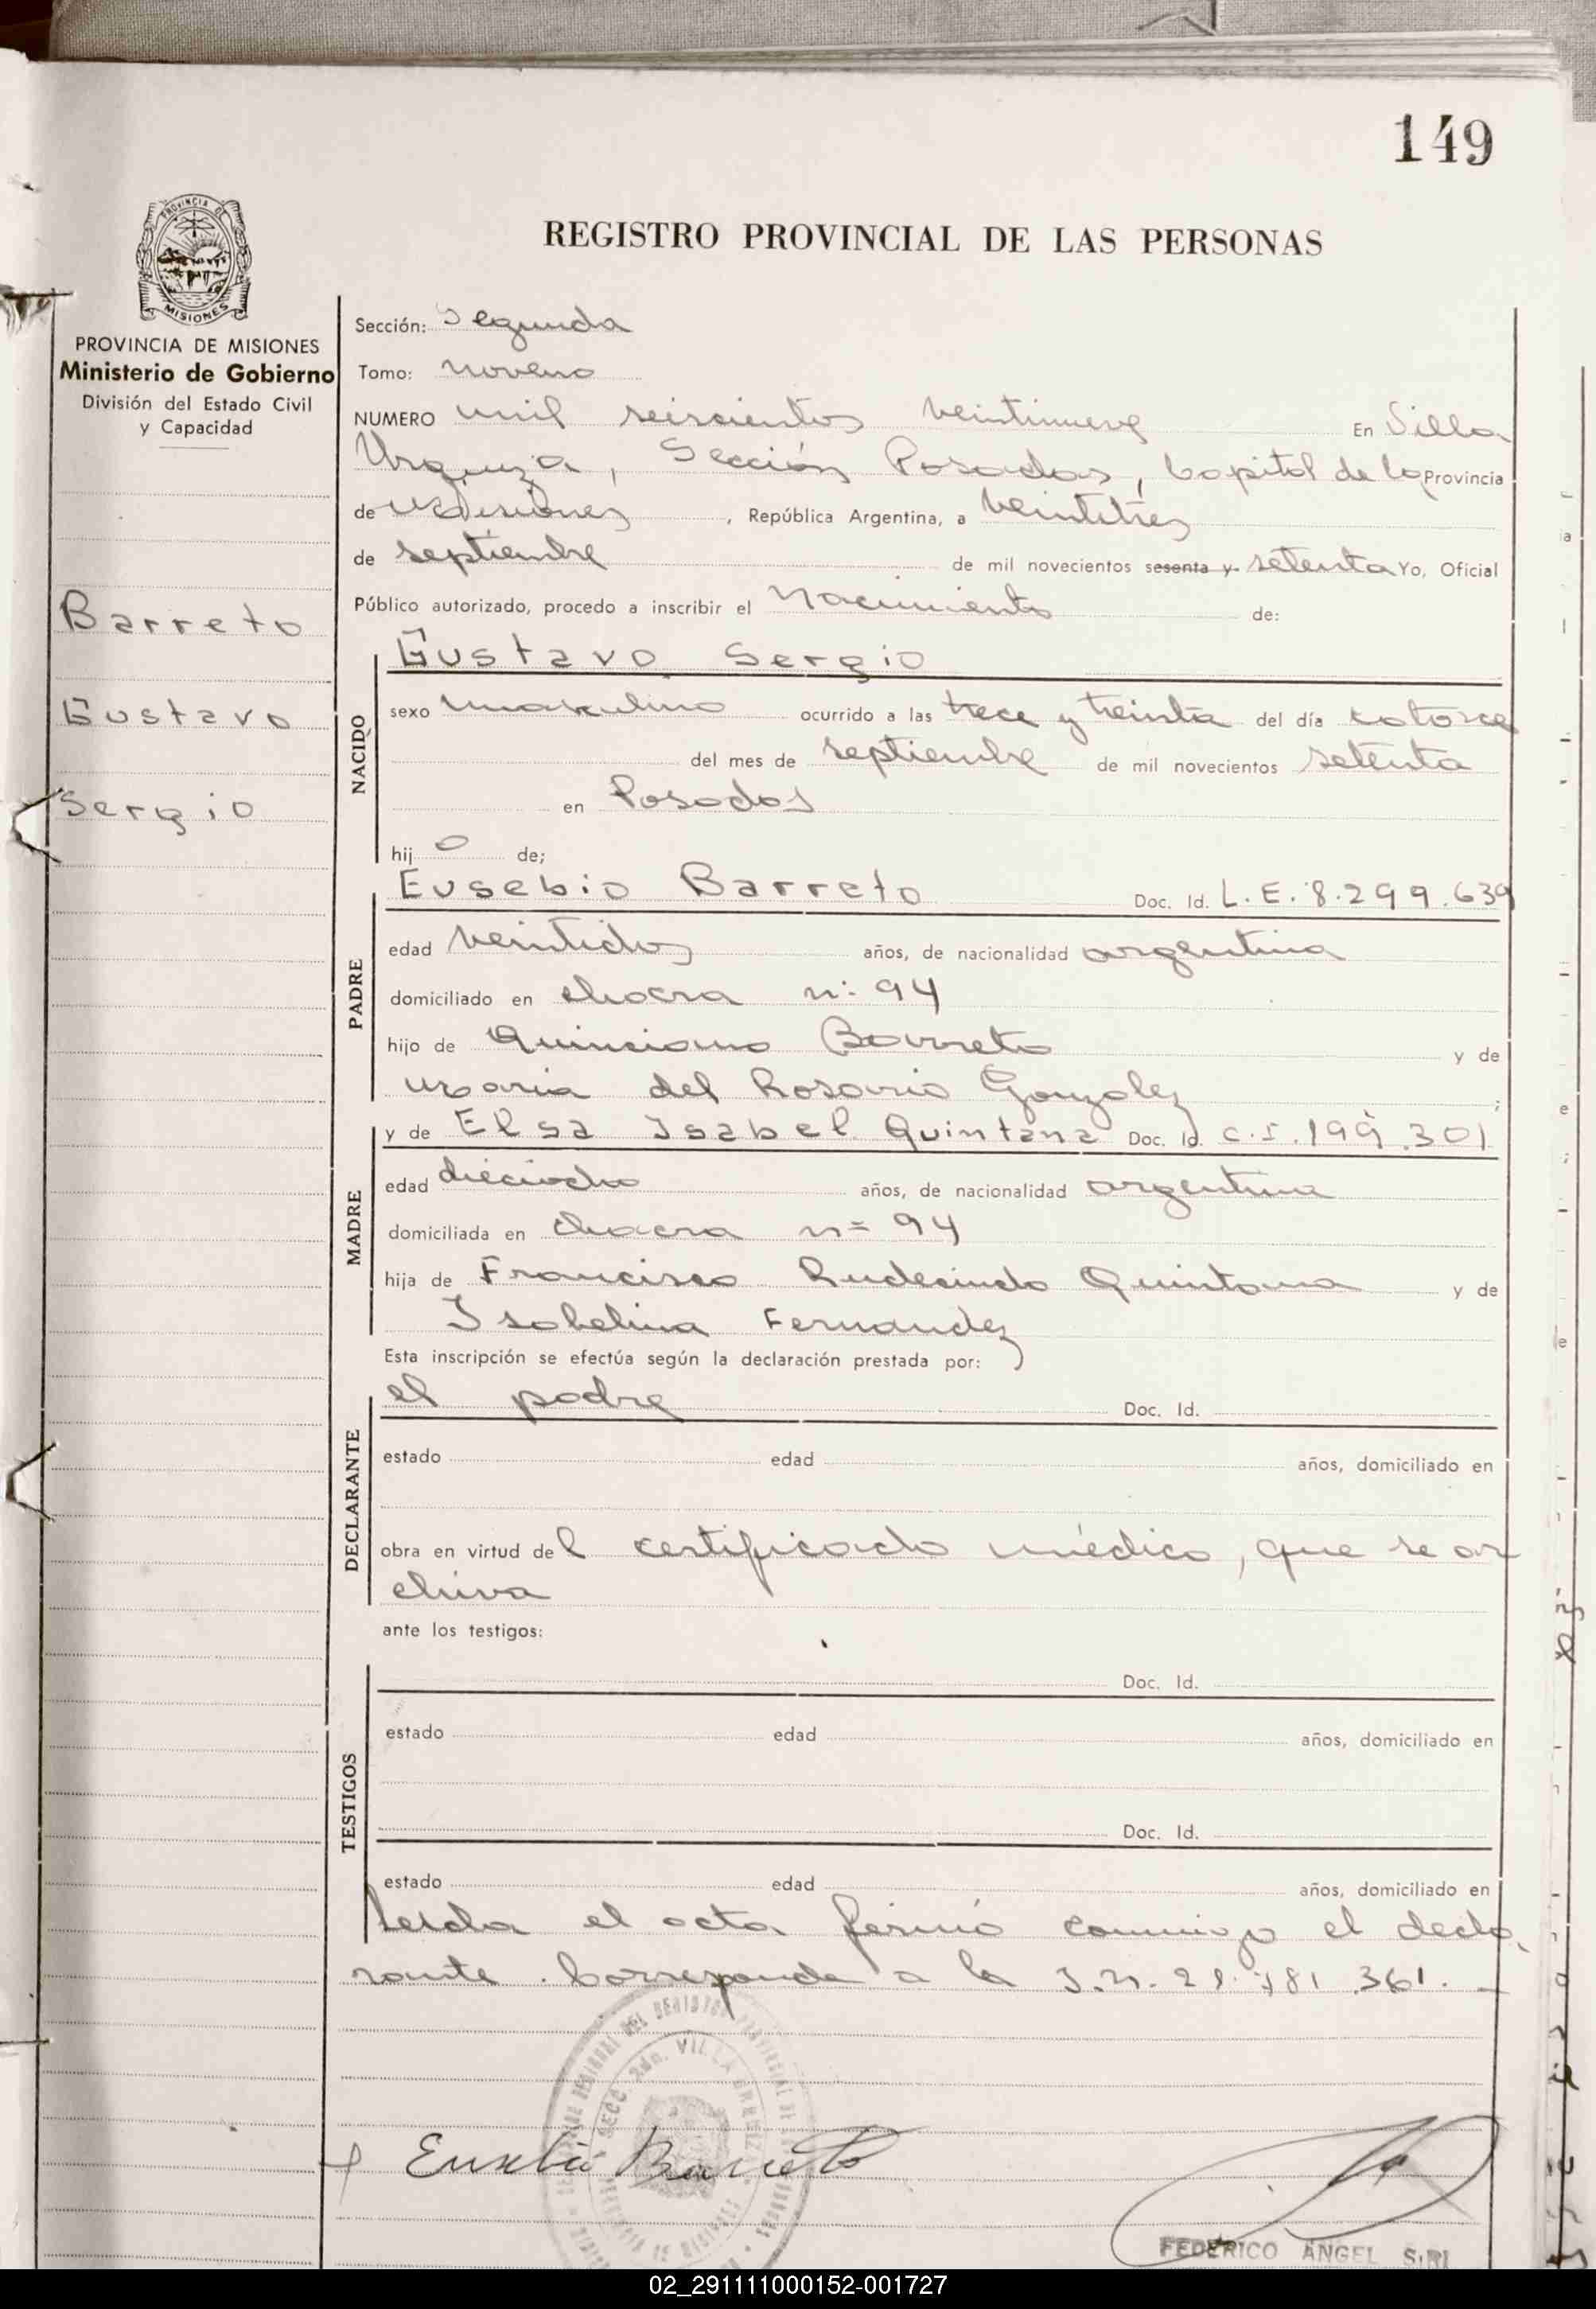 149
PROVINCIA DE
MISIONES
REGISTRO PROVINCIAL DE LAS PERSONAS
PROVINCIA DE MISIONES
Ministerio de Gobierno
División del Estado Civil
y Capacidad
Barreto
Gustavo
Sergio
Sección: Segunda
Tomo: noveno
NUMERO mil seiscientos veintinueve En Villa
Urquiza, Sección Posadas, Capital de la Provincia
de Misiones, República Argentina, a veintitres
de septiembre de mil novecientos sesenta y setenta Yo, Oficial
Público autorizado, procedo a inscribir el Nacimiento de:
NACIDO
Gustavo Sergio
sexo masculino ocurrido a las trece y treinta del día catorce
del mes de septiembre de mil novecientos setenta
en Posadas
hijo de;
PADRE
Eusebio Barreto Doc. Id. L.E. 8.299.639
edad veintidos años, de nacionalidad argentina
domiciliado en chacra n: 94
hijo de Quinciano Barreto y de
Maria del Rosario Gonzalez ;
MADRE
y de Elsa Isabel Quintana Doc. Id. C.I. 199.301
edad dieciocho años, de nacionalidad argentina
domiciliada en chacra n= 94
hija de Francisco Rudecindo Quintana y de
Isabelina Fernandez
Esta inscripción se efectúa según la declaración prestada por:
DECLARANTE
el padre Doc. Id.
estado edad años, domiciliado en
obra en virtud del certificado médico, que se ar
chiva
ante los testigos:
TESTIGOS
Doc. Id.
estado edad años, domiciliado en
Doc. Id.
estado edad años, domiciliado en
Leida el acta firmó conmigo el decla
rante. Corresponde a la I.N. 21.781.361.
Eusebio Barreto
FEDERICO ANGEL
02_291111000152-001727